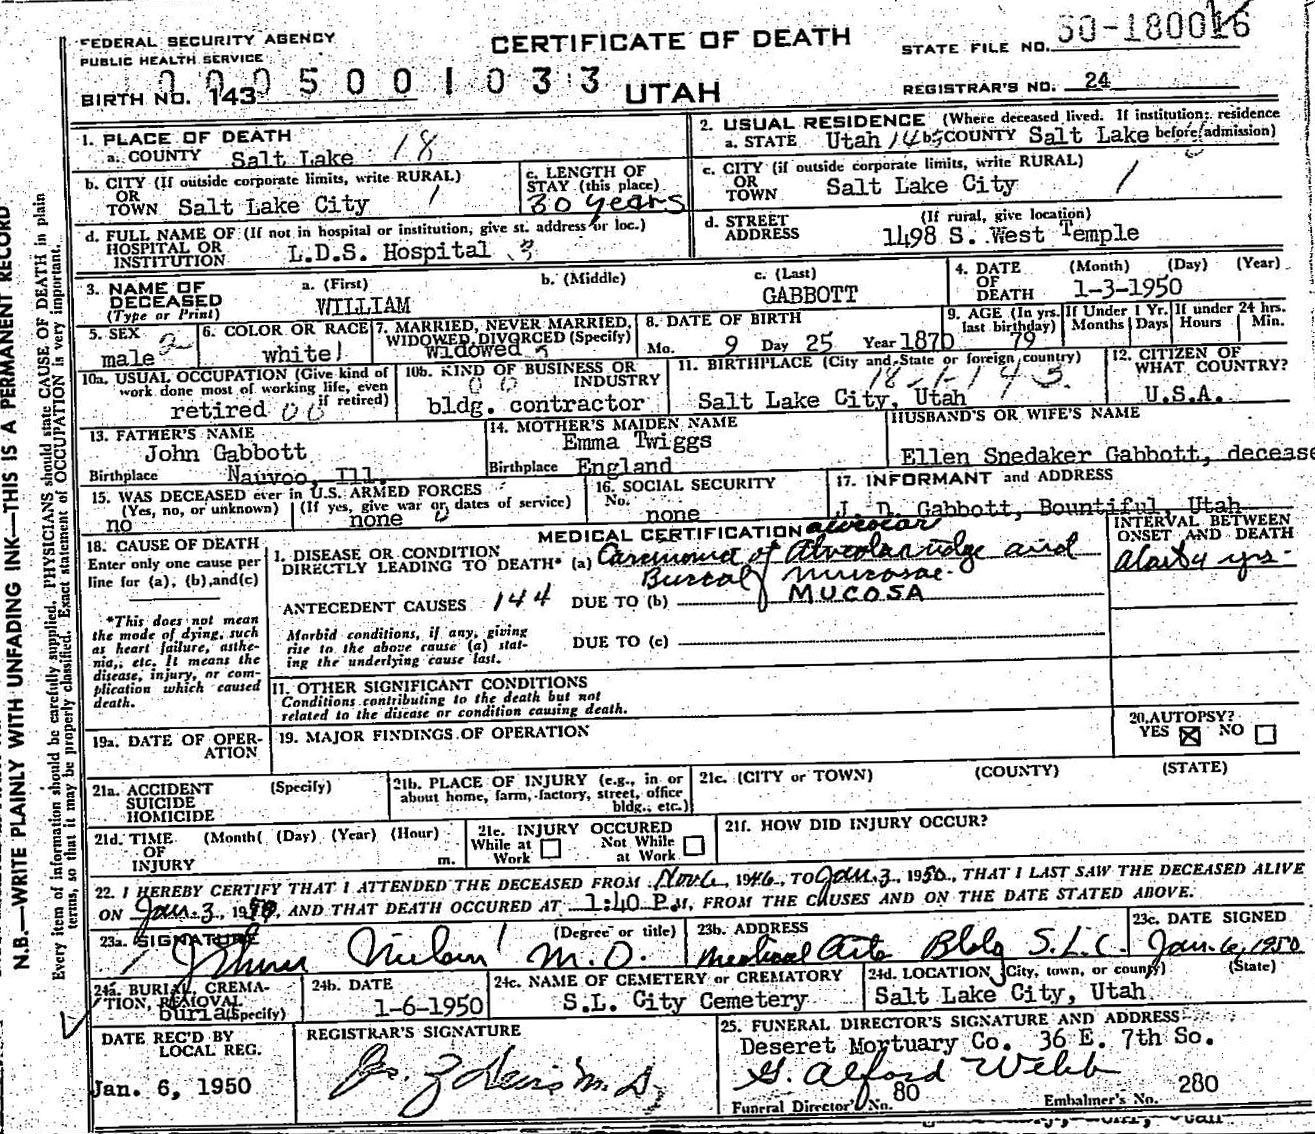 FEDERAL SECURITY AGENCY
PUBLIC HEALTH SERVICE
CERTIFICATE OF DEATH
STATE FILE NO. 50-180016
BIRTH NO. 143
0005001033
UTAH
REGISTRAR'S NO. 24
1. PLACE OF DEATH
a. COUNTY Salt Lake 18
2. USUAL RESIDENCE (Where deceased lived. If institution: residence before admission)
a. STATE Utah b. COUNTY Salt Lake
b. CITY (If outside corporate limits, write RURAL)
OR
TOWN Salt Lake City 1
c. LENGTH OF
STAY (this place)
30 years
c. CITY (if outside corporate limits, write RURAL)
OR
TOWN Salt Lake City 1
d. FULL NAME OF (If not in hospital or institution, give st. address or loc.)
HOSPITAL OR
INSTITUTION L.D.S. Hospital 3
d. STREET (If rural, give location)
ADDRESS 1498 S. West Temple
3. NAME OF
DECEASED
(Type or Print)
a. (First) b. (Middle) c. (Last)
WILLIAM GABBOTT
4. DATE (Month) (Day) (Year)
OF
DEATH 1-3-1950
5. SEX
male 2
6. COLOR OR RACE
white 1
7. MARRIED, NEVER MARRIED,
WIDOWED, DIVORCED (Specify)
Widowed
8. DATE OF BIRTH
Mo. 9 Day 25 Year 1870
9. AGE (In yrs. last birthday) 79
If Under 1 Yr. Months Days
If under 24 hrs. Hours Min.
10a. USUAL OCCUPATION (Give kind of
work done most of working life, even
if retired)
retired 00
10b. KIND OF BUSINESS OR
INDUSTRY
00
bldg. contractor
11. BIRTHPLACE (City and State or foreign country)
Salt Lake City, Utah
12. CITIZEN OF
WHAT COUNTRY?
U.S.A.
13. FATHER'S NAME
John Gabbott
Birthplace Nauvoo, Ill.
14. MOTHER'S MAIDEN NAME
Emma Twiggs
Birthplace England
HUSBAND'S OR WIFE'S NAME
Ellen Snedaker Gabbott, decease
15. WAS DECEASED ever in U.S. ARMED FORCES
(Yes, no, or unknown) (If yes, give war or dates of service)
no none
16. SOCIAL SECURITY
No.
none
17. INFORMANT and ADDRESS
J. D. Gabbott, Bountiful, Utah
MEDICAL CERTIFICATION
INTERVAL BETWEEN
ONSET AND DEATH
18. CAUSE OF DEATH
Enter only one cause per
line for (a), (b), and (c)
*This does not mean
the mode of dying, such
as heart failure, asthe-
nia, etc. It means the
disease, injury, or com-
plication which caused
death.
alveolar
I. DISEASE OR CONDITION
DIRECTLY LEADING TO DEATH* (a) Carcinoma of Alveolar ridge and
Buccal mucosae
MUCOSA
yrs-
ANTECEDENT CAUSES 144 DUE TO (b)
Morbid conditions, if any, giving
rise to the above cause (a) stat-
ing the underlying cause last.
DUE TO (c)
II. OTHER SIGNIFICANT CONDITIONS
Conditions contributing to the death but not
related to the disease or condition causing death.
19a. DATE OF OPER-
ATION
19. MAJOR FINDINGS OF OPERATION
20. AUTOPSY?
YES ☒ NO ☐
21a. ACCIDENT (Specify)
SUICIDE
HOMICIDE
21b. PLACE OF INJURY (e.g., in or
about home, farm, factory, street, office
bldg., etc.)
21c. (CITY or TOWN) (COUNTY) (STATE)
21d. TIME (Month) (Day) (Year) (Hour)
OF
INJURY m.
21e. INJURY OCCURED
While at Work ☐ Not While at Work ☐
21f. HOW DID INJURY OCCUR?
22. I HEREBY CERTIFY THAT I ATTENDED THE DECEASED FROM Nov 6, 1946, TO Jan. 3, 1950, THAT I LAST SAW THE DECEASED ALIVE
ON Jan. 3, 1950, AND THAT DEATH OCCURED AT 1:40 P.M, FROM THE CAUSES AND ON THE DATE STATED ABOVE.
23a. SIGNATURE (Degree or title)
M.D.
23b. ADDRESS
Medical Arts Bldg S.L.C.
23c. DATE SIGNED
Jan. 6, 1950
24a. BURIAL, CREMA-
TION, REMOVAL
(Specify)
burial
24b. DATE
1-6-1950
24c. NAME OF CEMETERY or CREMATORY
S.L. City Cemetery
24d. LOCATION (City, town, or county) (State)
Salt Lake City, Utah
DATE REC'D BY
LOCAL REG.
Jan. 6, 1950
REGISTRAR'S SIGNATURE
25. FUNERAL DIRECTOR'S SIGNATURE AND ADDRESS
Deseret Mortuary Co. 36 E. 7th So.
G. Alford Webb
Funeral Director's No. 80 Embalmer's No. 280
N.B.—WRITE PLAINLY WITH UNFADING INK—THIS IS A PERMANENT RECORD
Every item of information should be carefully supplied. PHYSICIANS should state CAUSE OF DEATH in plain
terms, so that it may be properly classified. Exact statement of OCCUPATION is very important.